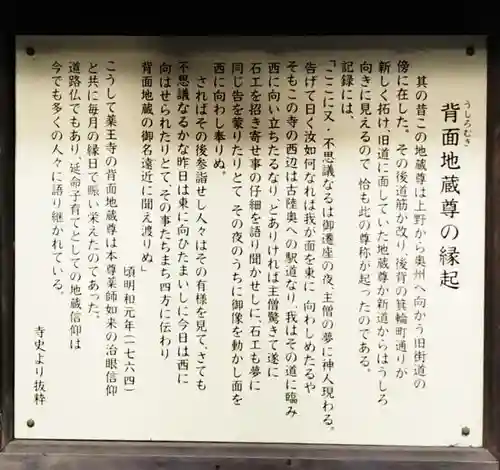 背面地蔵尊の縁起
うしろむき
其の昔この地蔵尊は上野から奥州へ向かう旧街道の
傍に在した。その後道筋が改り、後背の箕輪町通りが
新しく拓け、旧道に面していた地蔵尊が新道からはうしろ
向きに見えるので 恰も此の尊称が起ったのである。
記録には、
「ここに又・不思議なるは御遷座の夜、主僧の夢に神人現わる。
告げて曰く汝如何なれば我が面を東に 向わしめたるや
そもこの寺の西辺は古陸奥への駅道なり、我はその道に臨み
西に向い立ちたるなり、とありければ主僧驚きて遂に
石工を招き寄せ事の仔細を語り聞かせしに、石工も夢に
同じ告を蒙りたりとて その夜のうちに御像を動かし面を
西に向わし奉りぬ。
さればその後参詣せし人々はその有様を見て、さても
不思議なるかな昨日は東に向ひたまいしに今日は西に
向はせられたりとて、その事たちまち四方に伝わり
背面地蔵の御名遠近に聞え渡りぬ」
頃明和元年(一七六四)
こうして薬王寺の背面地蔵尊は本尊薬師如来の治眼信仰
と共に毎月の縁日で賑い栄えたのであった。
道路仏でもあり、延命子育てとしての地蔵信仰は
今でも多くの人々に語り継がれている。
寺史より抜粋